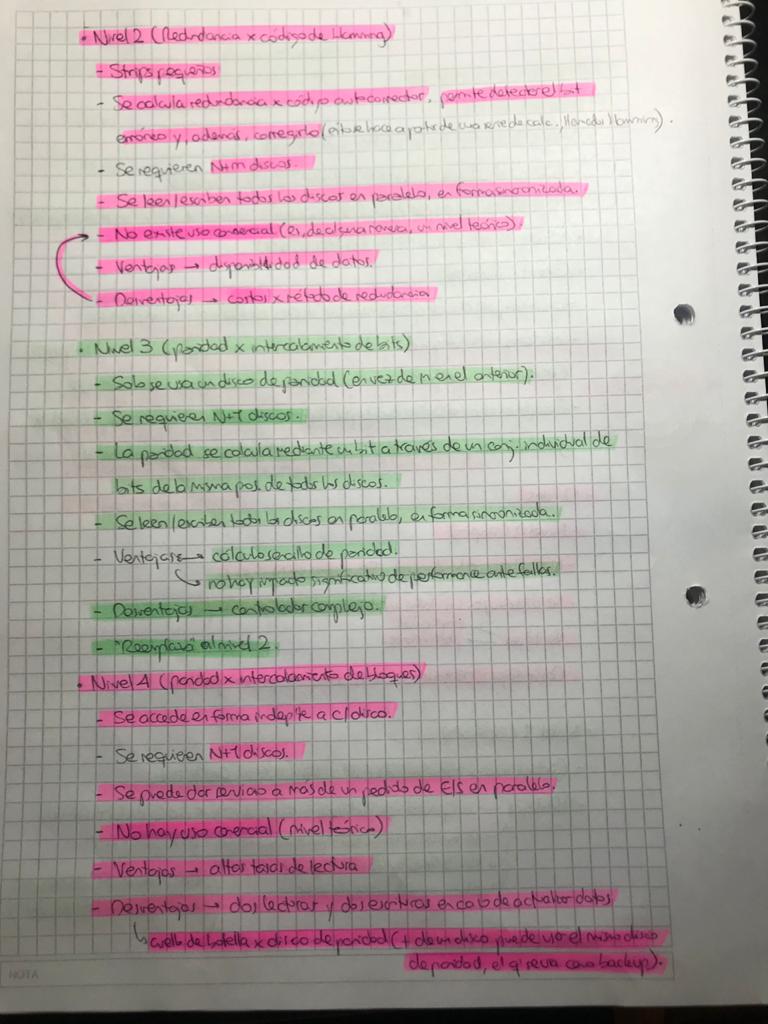 • Nivel 2 (Redundancia x código de Hamming)
- Strips pequeños
- Se calcula redundancia x código autocorrector, permite detectar el bit
erróneo y, además, corregirlo (esto se hace a partir de una serie de calc. Hamming).
- Se requieren N+m discos.
- Se leen/escriben todos los discos en paralelo, en forma sincronizada.
- No existe uso comercial (es, de alguna manera, un nivel teórico).
- Ventajas → disponibilidad de datos.
- Desventajas → costos x método de redundancia
• Nivel 3 (paridad x intercalamiento de bits)
- Solo se usa un disco de paridad (en vez de m en el anterior).
- Se requieren N+1 discos.
- La paridad se calcula mediante un bit a través de un conj. individual de
bits de la misma pos. de todos los discos.
- Se leen/escriben todos los discos en paralelo, en forma sincronizada.
- Ventajas → cálculo sencillo de paridad.
↳ no hay impacto significativo de performance ante fallas.
- Desventajas → controlador complejo.
- "Reemplazó" al nivel 2.
• Nivel 4 (paridad x intercalamiento de bloques)
- Se accede en forma indep/te a c/disco.
- Se requieren N+1 discos.
- Se puede dar servicio a más de un pedido de E/S en paralelo.
- No hay uso comercial (nivel teórico)
- Ventajas → altas tasas de lectura
- Desventajas → dos lecturas y dos escrituras en caso de actualizar datos
↳ cuello de botella x disco de paridad (+ de un disco puede usar el mismo disco
de paridad, el q' se usa como backup).
NOTA